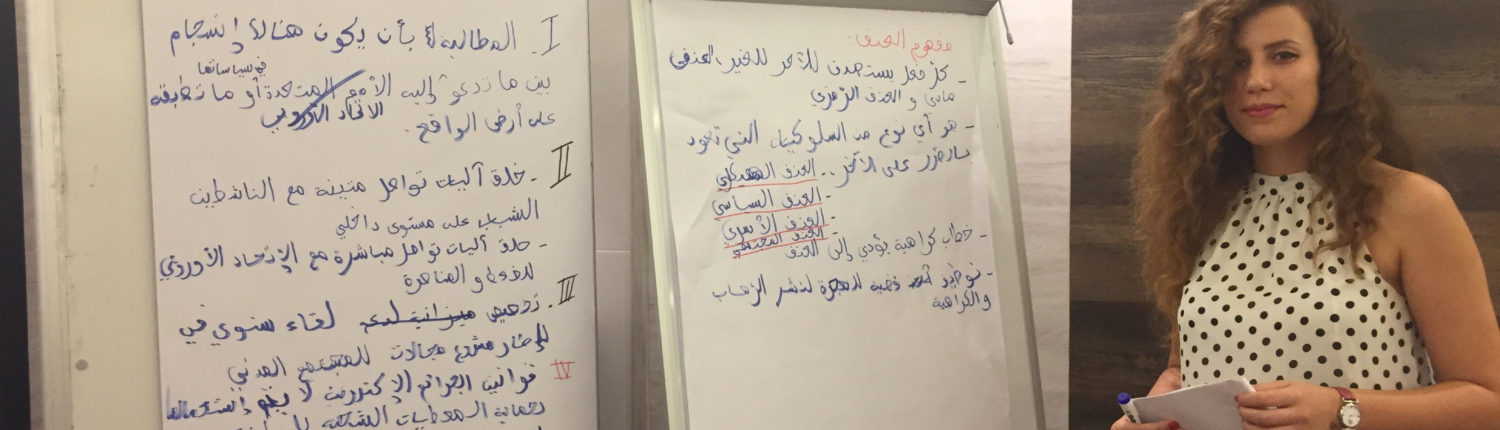 I - المطالبة بأن يكون هنالك إنسجام
في سياساتها
بين ما تدعو إليه الأمم المتحدة أو ما تطبقه
الاتحاد الأوروبي
على أرض الواقع.
II - خلق آليات تواصل متينة مع الناشطين
الشباب على مستوى داخلي
- خلق آليات تواصل مباشرة مع الإتحاد الأوروبي
للدفع و المناصرة
III - تخصيص ميزانية لدعم لقاء سنوي في
إطار مشروع مجالات للمجتمع المدني
IV قوانين الجرائم الإلكترونية لا يتم إستعمالها
لحماية المعطيات الشخصية
مفهوم العنف:
- كل فعل يستهدف للآخر للغير، العنف
مادي و العنف الرمزي
- هو أي نوع من السلوكيات التي تعود
بالضرر على الآخر.. - العنف الهيكلي
- العنف السياسي
- العنف الأسري
العنف المجتمعي
- خطاب كراهية يؤدي إلى العنف
- توظيف قضية الهجرة لنشر الإرهاب
والكراهية